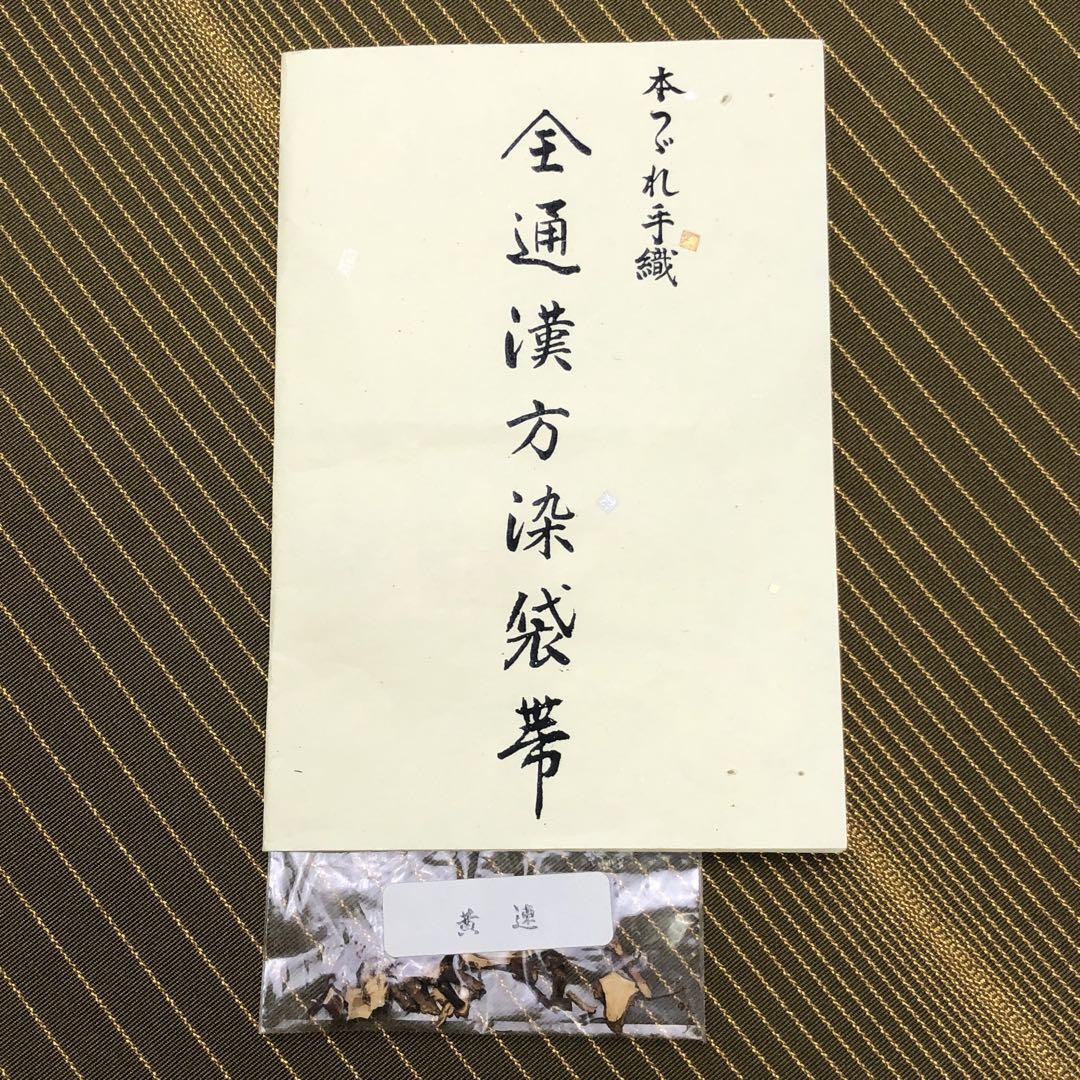 本つゞれ手織
全通漢方染袋帯
黄連